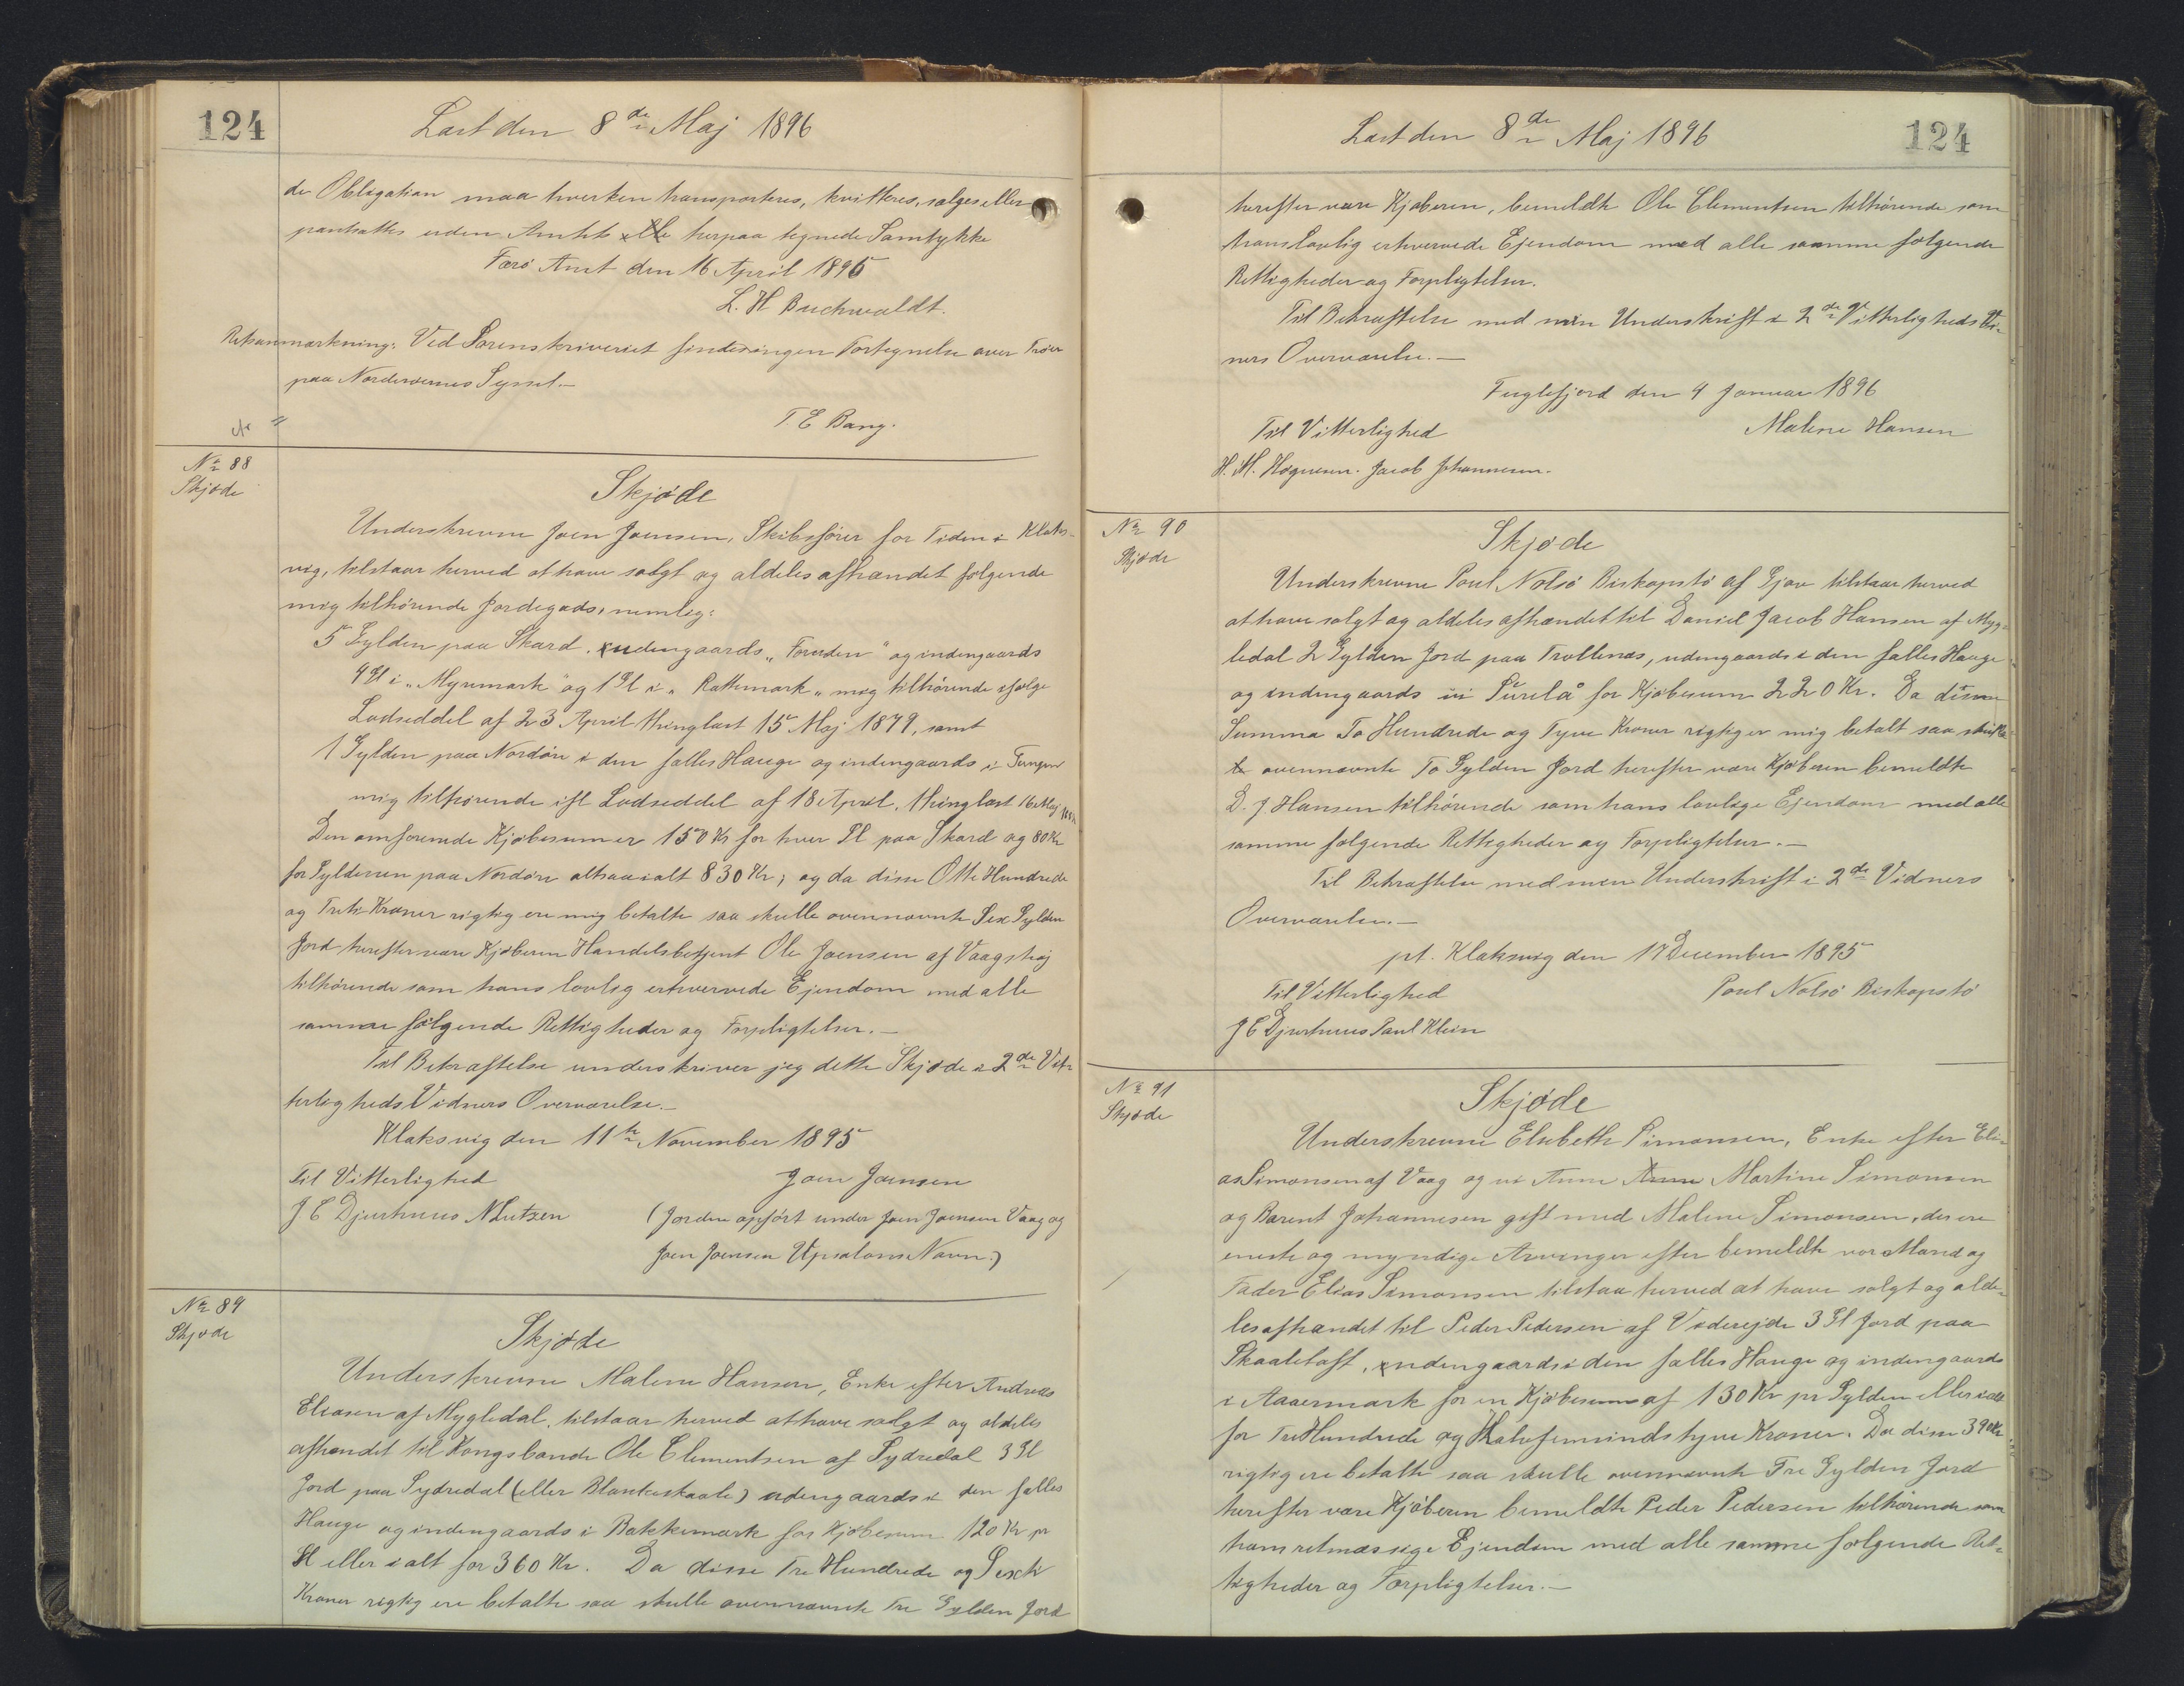 124
Læst den 8de Maj 1896
de Obligation maa hverken transporteres, kvitteres, sælges eller
pantsættes uden Amtets herpaa tegnede Samtykke
Færø Amt den 16 April 1896
L. H Buchwaldt.
Retsanmærkning: Ved Sorenskriveriet findes ingen Fortegnelse over
paa Norderøernes Syssel.—
T. E Bang.
No 88
Skjøde
Skjøde
Underskrevne Joen Joensen, Skibsfører for Tiden i Klaks-
vig, tilstaar herved at have solgt og aldeles afhændet følgende
mig tilhørende Jordegods, nemlig:
5 Gylden paa Skard, udengaards "Foruden" og indengaards
4 Gl i "Myremark" og 1 Gl i "Rattemark" mig tilhørende ifølge
Lodseddel af 23 April thinglæst 15 Maj 1879, samt
1 Gylden paa Nordøre i den fælles Hauge og indengaards i
mig tilhørende ifl Lodseddel af 18 April, thinglæst 16 Maj
Den omforenede Kjøbesum er 150 Kr for hver Gl paa Skard og 80 Kr
for Gylderen paa Nordøre altsaa ialt 830 Kr; og da disse Otte Hundrede
og Treti Kroner rigtig ere mig betalte saa skulle ovennævnte Sex Gylden
Jord herefter være Kjøberen Handelsbetjent Ole Joensen af Vaagshøj
tilhørende som hans lovlig erhvervede Ejendom med alle
samme følgende Rettigheder og Forpligtelser.—
Til Bekræftelse underskriver jeg dette Skjøde i 2de Vit-
terligheds Vidners Overværelse.—
Klaksvig den 11te November 1895
Til Vitterlighed Joen Joensen
J C Djurhuus N Lützen (Jorden opført under Joen Joensen Vaag og
Joen Joensen Upsalons Navn.)
No 89
Skjøde
Skjøde
Underskrevne Malene Hansen, Enke efter Andreas
Eliasen af Mygledal, tilstaar herved at have solgt og aldeles
afhændet til Kongsbonde Ole Clementsen af Sydredal 3 Gl
Jord paa Sydredal (eller Blankeskaale) udengaards i den fælles
Hauge og indengaards i Bakkemark for Kjøbesum 120 Kr pr
Gl eller ialt for 360 Kr. Da disse Tre Hundrede og Sexti
Kroner rigtig ere betalte saa skulle ovennævnte Tre Gylden Jord
Læst den 8de Maj 1896
124
herefter være Kjøberen, bemeldte Ole Clementsen tilhørende som
hans lovlig erhvervede Ejendom med alle samme følgende
Rettigheder og Forpligtelser.
Til Bekræftelse med min Underskrift i 2de Vitterligheds Vi-
ners Overværelse.—
Fuglefjord den 4 Januar 1896
Til Vitterlighed Malene Hansen
H. M. Høgnesen. Jacob Johannesen.
No 90
Skjøde
Skjøde
Underskrevne Poul Nolsø Biskopstø af Gjov tilstaar herved
at have solgt og aldeles afhændet til Daniel Jacob Hansen af Myg-
ledal 2 Gylden Jord paa Trøllenæs, udengaards i den fælles Hauge
og indengaards i Sürelå for Kjøbesum 220 Kr. Da disse
Summa To Hundrede og Tyve Kroner rigtig er mig betalt saa skulle
ovennævnte To Gylden Jord herefter være Kjøberen bemeldte
D. J. Hansen tilhørende som hans lovlige Ejendom med alle
samme følgende Rettigheder og Forpligtelser.—
Til Bekræftelse med min Underskrift i 2de Vidners
Overværelse.—
pt. Klaksvig den 17 December 1895
Til Vitterlighed Poul Nolsø Biskopstø
J C Djurhuus Paul Klein
No 91
Skjøde
Skjøde
Underskrevne Elsebeth Simonsen, Enke efter Eli-
as Simonsen af Vaag og vi Anne Anne Martine Simonsen
og Barent Johannesen gift med Malene Simonsen, der ere
eneste og myndige Arvinger efter bemeldte vor Mand og
Fader Elias Simonsen tilstaa herved at have solgt og alde-
les afhændet til Peder Pedersen af Viderejde 3 Gl Jord paa
Skaaletoft, udengaards i den fælles Hauge og indengaards
i Aaaermark for en Kjøbesum af 130 Kr pr Gylden eller ialt
for Tre Hundrede og Halvfemsindstyve Kroner. Da disse 390 Kr
rigtig ere betalte saa skulle ovennævnte Tre Gylden Jord
herefter være Kjøberen bemeldte Peder Pedersen tilhørende som
hans retmæssige Ejendom med alle samme følgende Ret-
tigheder og Forpligtelser.—